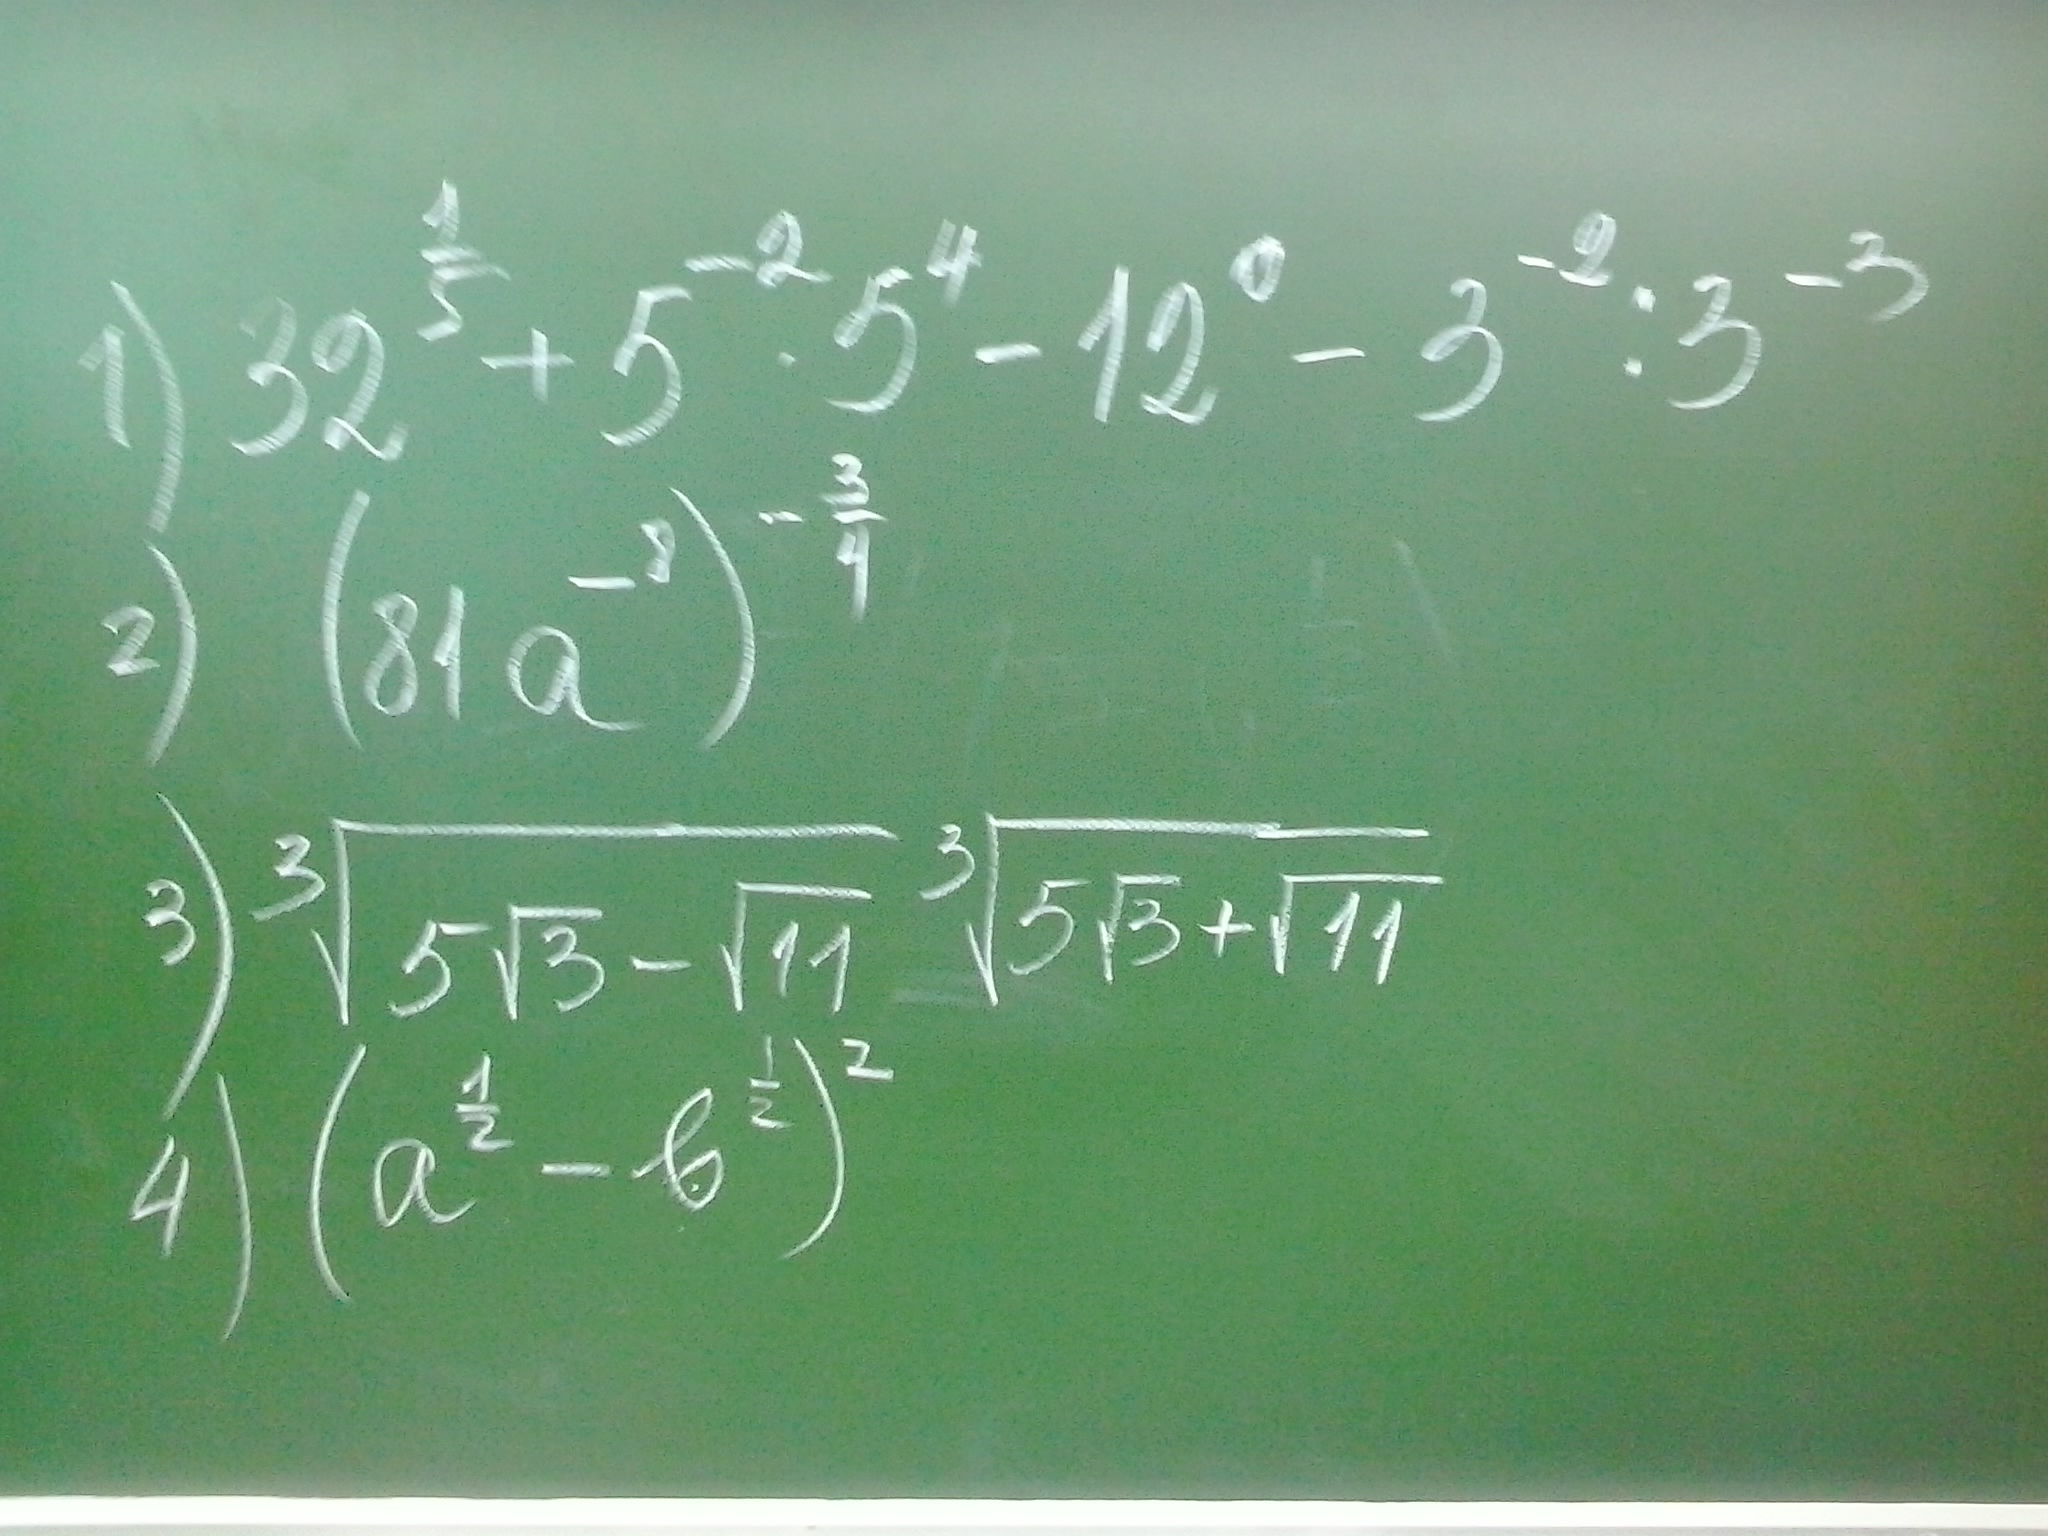 1) 32^{\frac{1}{5}} + 5^{-2} · 5^{4} - 12^{0} - 3^{-2} : 3^{-3}
2) (81a^{-8})^{-\frac{3}{4}}
3) \sqrt[3]{5\sqrt{3} - \sqrt{11}} \sqrt[3]{5\sqrt{3} + \sqrt{11}}
4) (a^{\frac{1}{2}} - b^{\frac{1}{2}})^{2}